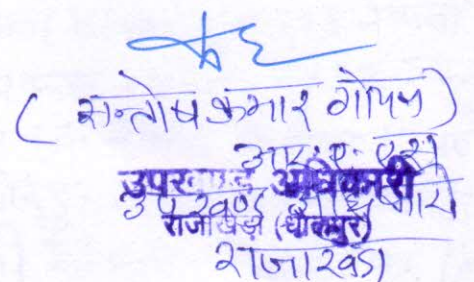 (सन्तोष कुमार गोयल)
आर. ए. एस
उपखण्ड अधिकारी
उपखण्ड अधिकारी
राजाखेड़ा (धौलपुर)
राजाखेड़ा